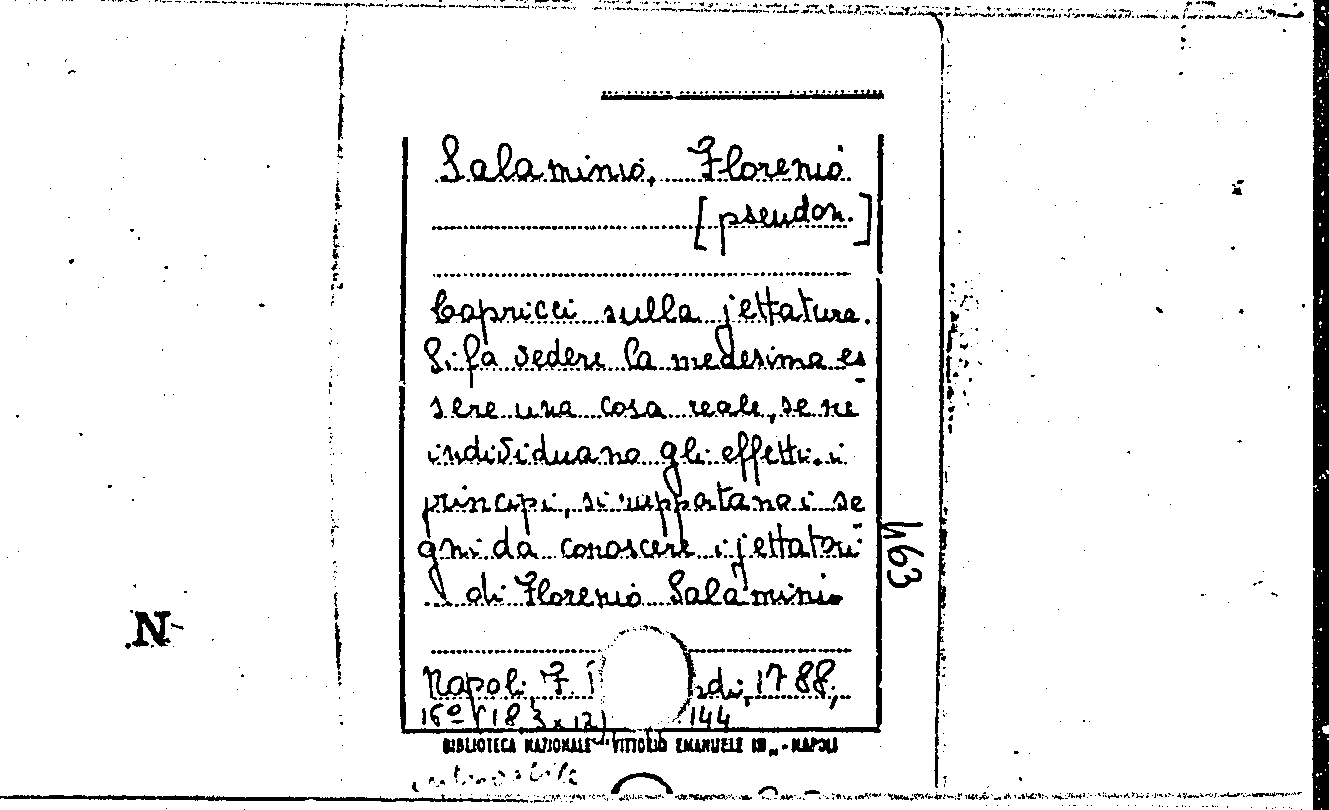 Salaminio, Florenio
[pseudon.]
Capricci sulla jettatura.
Si fa vedere la medesima es
sere una cosa reale, se ne
individuano gli effetti, i
principi, si rapportano i se
gni da conoscere i jettatori
di Florenio Salaminio
Napoli, F. 1788,
16º (18,3 x 12) 144
BIBLIOTECA NAZIONALE "VITTORIO EMANUELE III" - NAPOLI
463
N